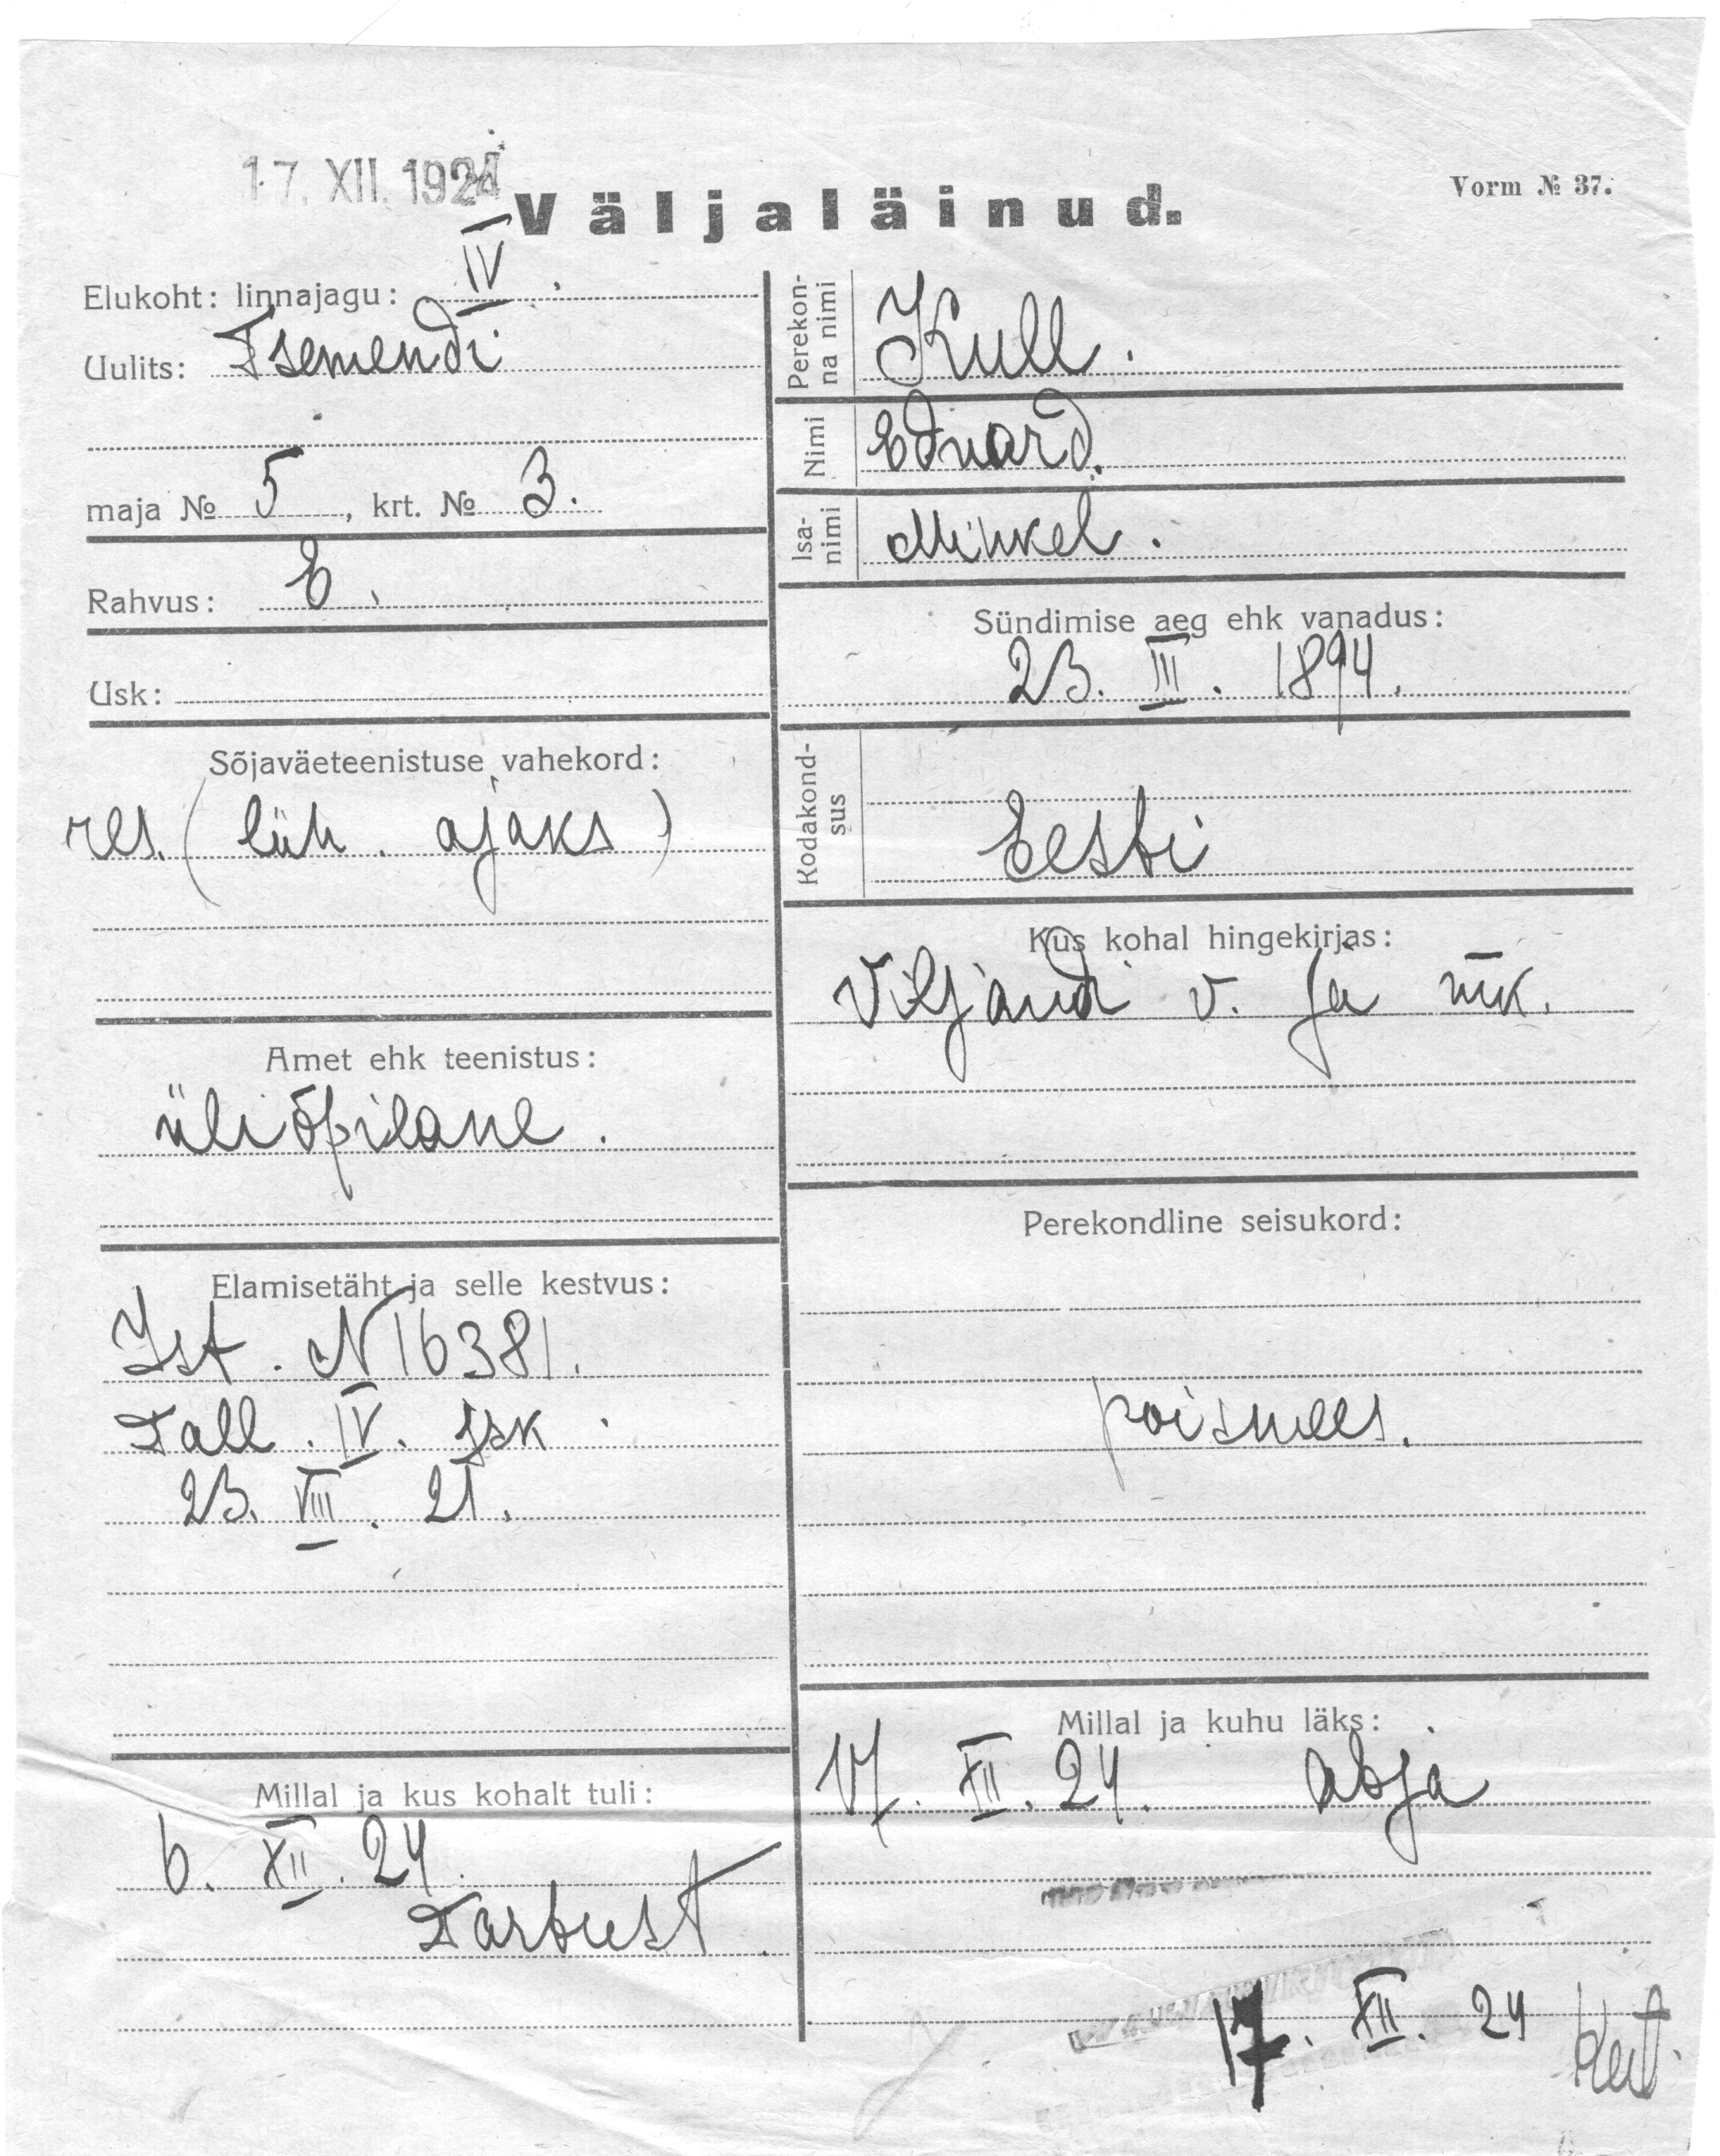 17. XII. 1924
Väljaläinud.
Vorm № 37.
Elukoht: linnajagu: IV.
Uulits: Tsemendi
maja № 5, krt. № 3.
Rahvus: E.
Usk:
Sõjaväeteenistuse vahekord:
res. (lüh. ajaks)
Amet ehk teenistus:
üliõpilane.
Elamisetäht ja selle kestvus:
Ist. N 16381.
Tall. IV. jsk.
23. VIII. 21.
Millal ja kus kohalt tuli:
6. XII. 24.
Tartust.
Perekonna nimi
Kull.
Nimi
Eduard.
Isanimi
Mihkel.
Sündimise aeg ehk vanadus:
23. III. 1894.
Kodakondsus
Eesti
Kus kohal hingekirjas:
Viljandi v. ja mk.
Perekondline seisukord:
poismees.
Millal ja kuhu läks:
17. XII. 24. Abja
17. XII. 24